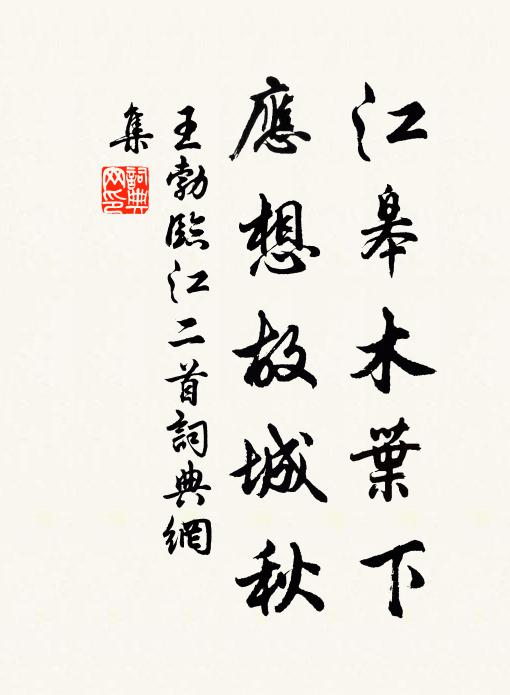 江皋木葉下
應想故城秋
王勃臨江二首詞典網
集
詞典
网印